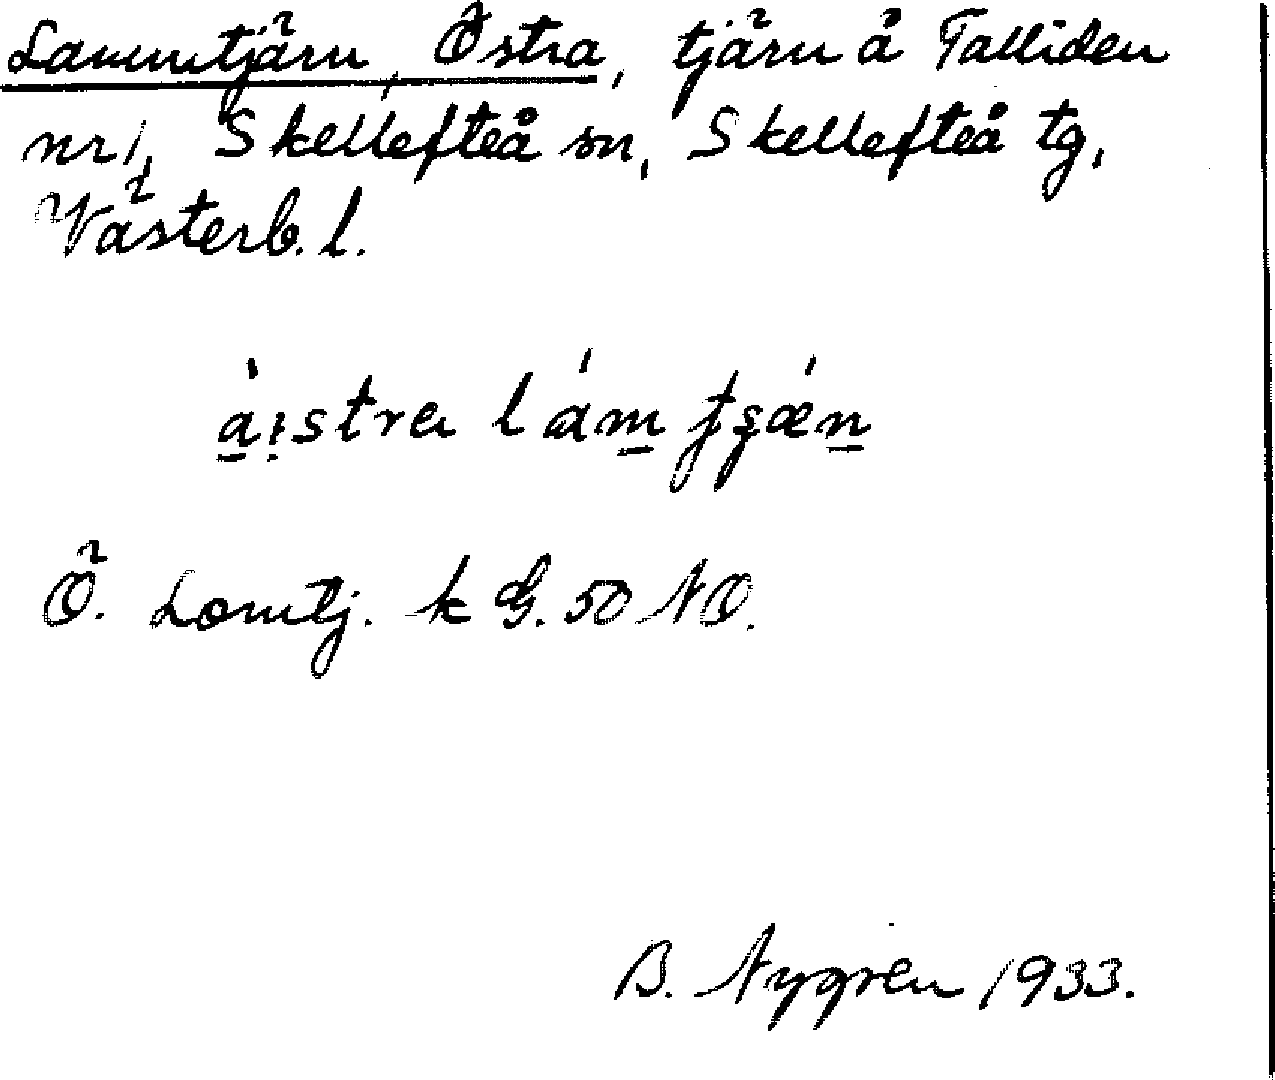 Lammtjärn, Östra, tjärn å Talliden
nr 1, Skellefteå sn, Skellefteå tg,
Västerb. l.
Ö. Lomtj. k G. 50 NO.
B. Nygren 1933.